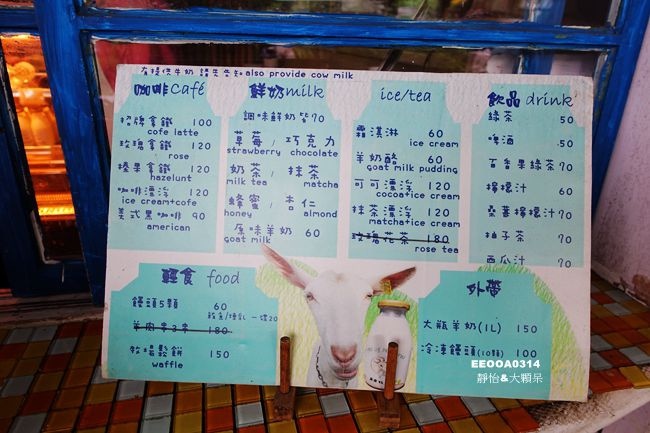 有提供牛奶 請先告知also provide cow milk
咖啡café
招牌拿鐵 100
cofe latte
玫瑰拿鐵 120
rose
榛果拿鐵 120
hazelunt
咖啡漂浮 120
ice cream+cofe
美式黑咖啡 90
american
鮮奶milk
調味鮮奶皆70
草莓/巧克力
strawberry chocolate
奶茶/抹茶
milk tea matcha
蜂蜜/杏仁
honey almond
原味羊奶 60
goat milk
ice/tea
霜淇淋 60
ice cream
羊奶酪 60
goat milk pudding
可可漂浮 120
cocoa+ice cream
抹茶漂浮 120
matcha+ice cream
玫瑰花茶 180
rose tea
飲品 drink
綠茶 50
啤酒 50
百香果綠茶 70
檸檬汁 60
桑葚檸檬汁 70
柚子茶 70
西瓜汁 70
輕食 food
饅頭5顆 60
煉乳 一碟20
羊肉串3串 180
牧場鬆餅 150
waffle
外帶
大瓶羊奶(1L) 150
冷凍饅頭(10顆) 100
EEOOA0314
靜怡&大顆呆